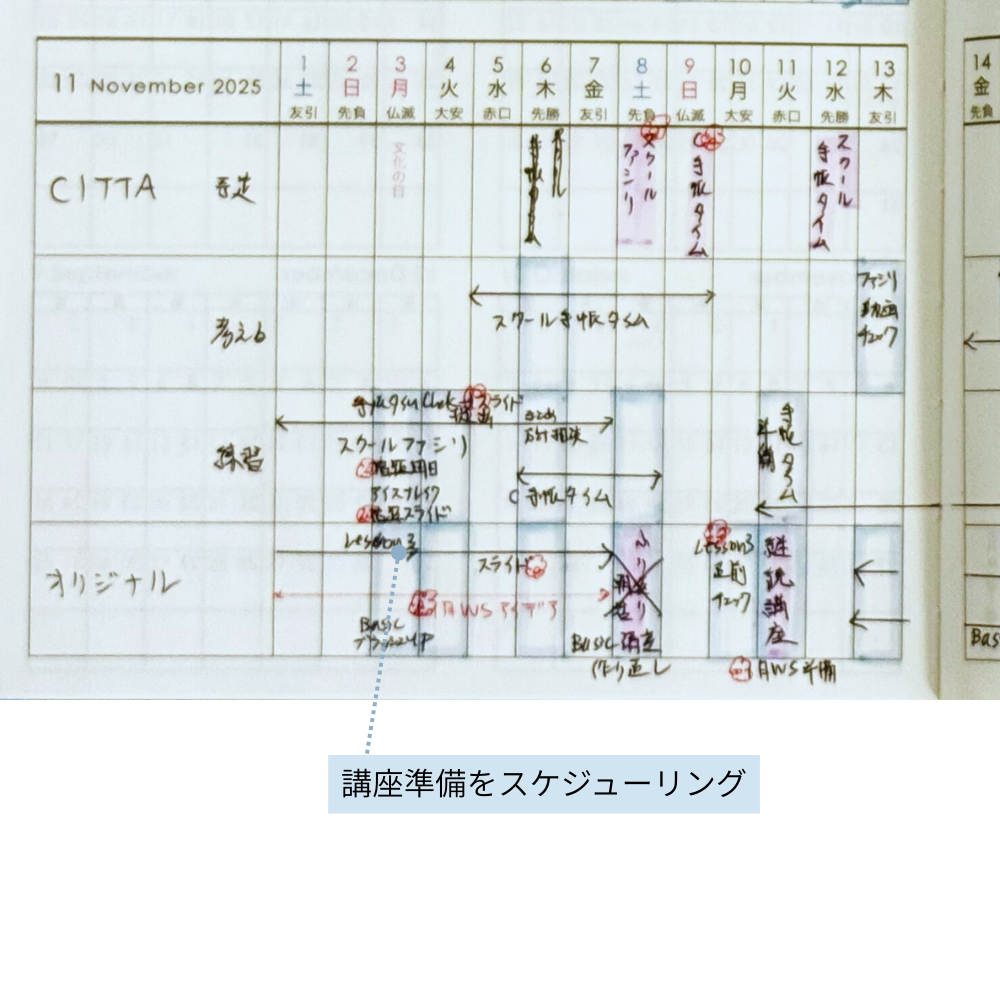 11 November 2025
1 2 3 4 5 6 7 8 9 10 11 12 13 14
土 日 月 火 水 木 金 土 日 月 火 水 木 金
友引 先負 仏滅 大安 赤口 先勝 友引 先負 仏滅 大安 赤口 先勝 友引 先負
文化の日
CITTA 予定
スクール
ファシリ
手帳タイム
スクール
手帳タイム
考える
スクール手帳タイム
ファシリ
動画
チェック
練習
スライド
スクールファシリ
アイスブレイク
スライド
C 手帳タイム
手帳タイム
準備
オリジナル
Lesson3
スライド
月WSアイデア
Basic
ブラッシュUP
Basic 講座
作り直し
Lesson3
直前
チェック
継続講座
月WS準備
Bas
講座準備をスケジューリング